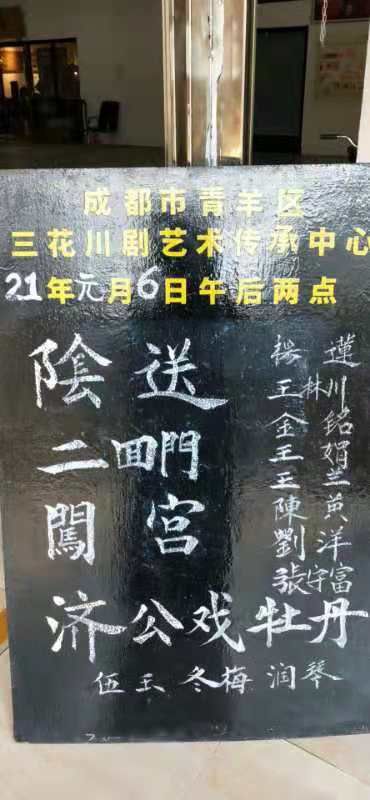 成都市青羊区
三花川剧艺术传承中心
21年元月6日午后两点
陰送
二回門
闖宮
济公戏牡丹
楊蓮
王林川
金銘
王娟
王兰
陳黄
劉洋
張守富
伍玉 冬梅 润琴